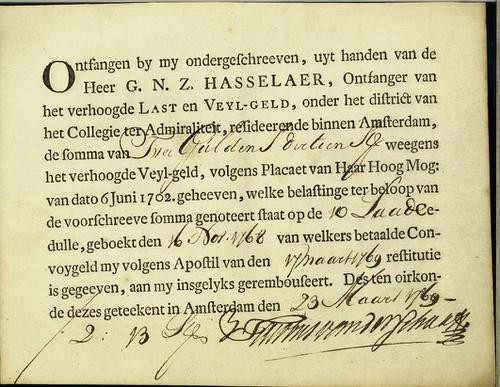 Ontfangen by my ondergeſchreeven, uyt handen van de
Heer G. N. Z. HASSELAER, Ontfanger van
het verhoogde LAST en VEYL-GELD, onder het diſtrict van
het Collegie ter Admiraliteit, reſideerende binnen Amſterdam,
de ſomma van Twee Guldens dertien St weegens
het verhoogde Veyl-geld, volgens Placaet van Haar Hoog Mog:
van dato 6 Juni 1702. geheeven, welke belaſtinge ter beloop van
de voorſchreeve ſomma genoteert ſtaat op de 10 Laade Ce-
dulle, geboekt den 16 Nov. 1768 van welkers betaalde Con-
voygeld my volgens Apoſtil van den 17 maart 1769 reſtitutie
is gegeeven, aan my inſgelyks gerembourſeert. Des ten oirkon-
de dezes geteekent in Amſterdam den 23 Maart 1769
2: 13 St van der Schaaff